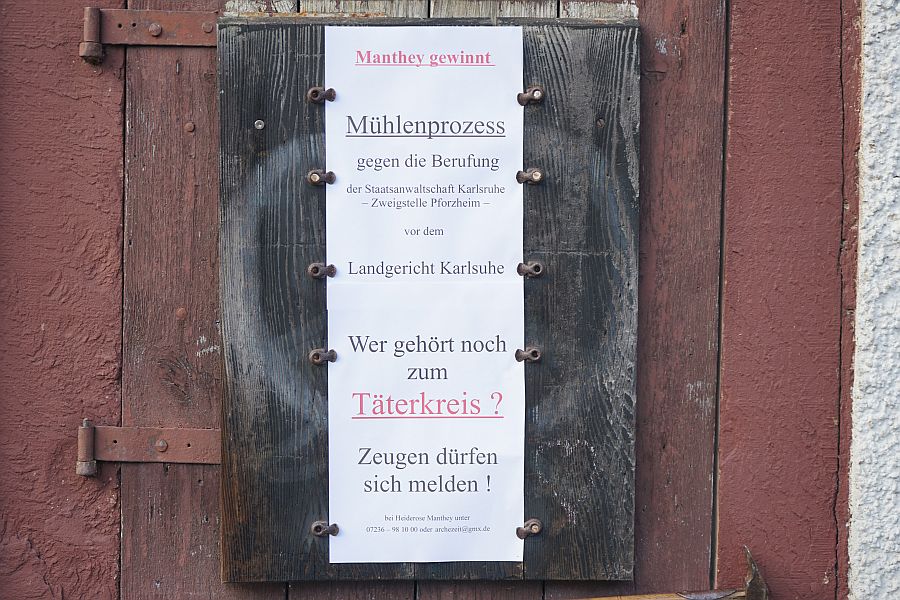 Manthey gewinnt
Mühlenprozess
gegen die Berufung
der Staatsanwaltschaft Karlsruhe
– Zweigstelle Pforzheim –
vor dem
Landgericht Karlsuhe
Wer gehört noch
zum
Täterkreis ?
Zeugen dürfen
sich melden !
bei Heiderose Manthey unter
07236 – 98 10 00 oder archezeit@gmx.de